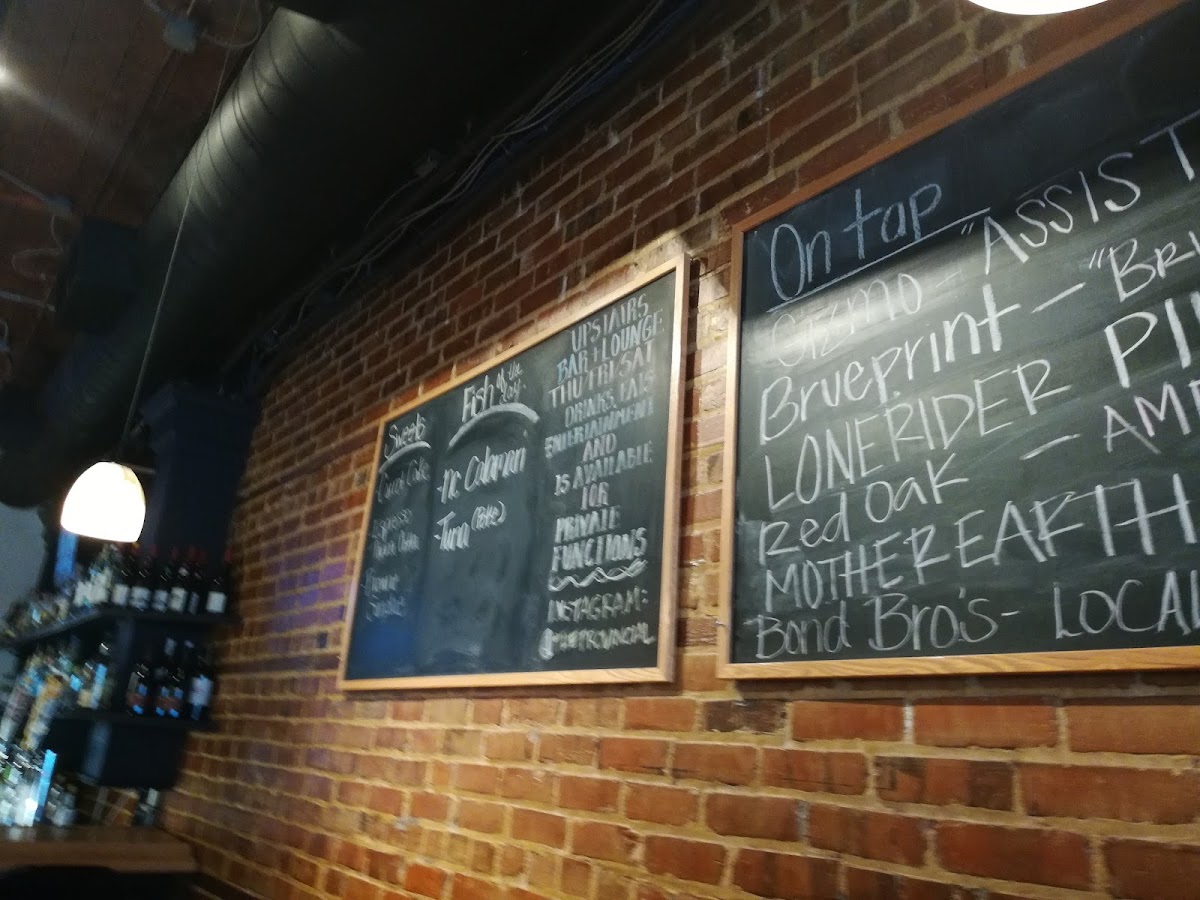 Sweets
Carrot Cake
Espresso
Brownie
Fish of the day
-Nc. Cataman
-Tuna (Poke)
UPSTAIRS
BAR + LOUNGE
THU FRI SAT
DRINKS, EATS
ENTERTAINMENT
AND
IS AVAILABLE
FOR
PRIVATE
FUNCTIONS
INSTAGRAM:
@THEPROVINCIAL
On tap
Gizmo - "ASSIST
Brueprint - "Bri
LONERIDER PI
Red Oak - AMB
MOTHER EARTH
Bond Bro's - LOCAL